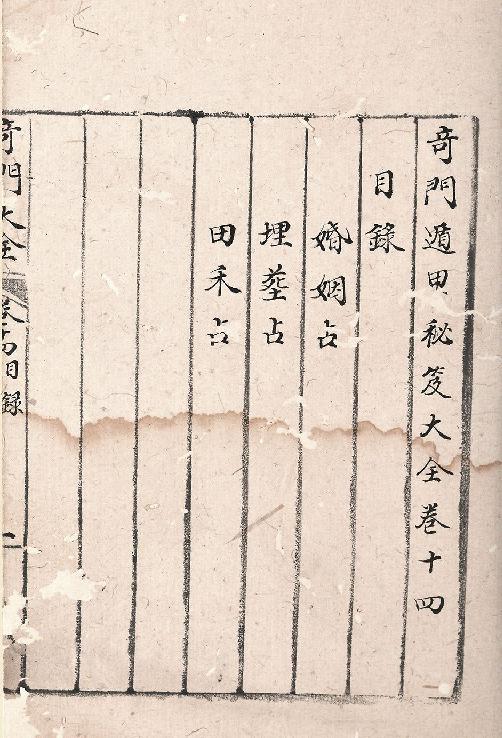 奇門遁甲秘笈大全卷十四
目錄
婚姻占
埋塟占
田禾占
奇門大全 卷十四目錄 一